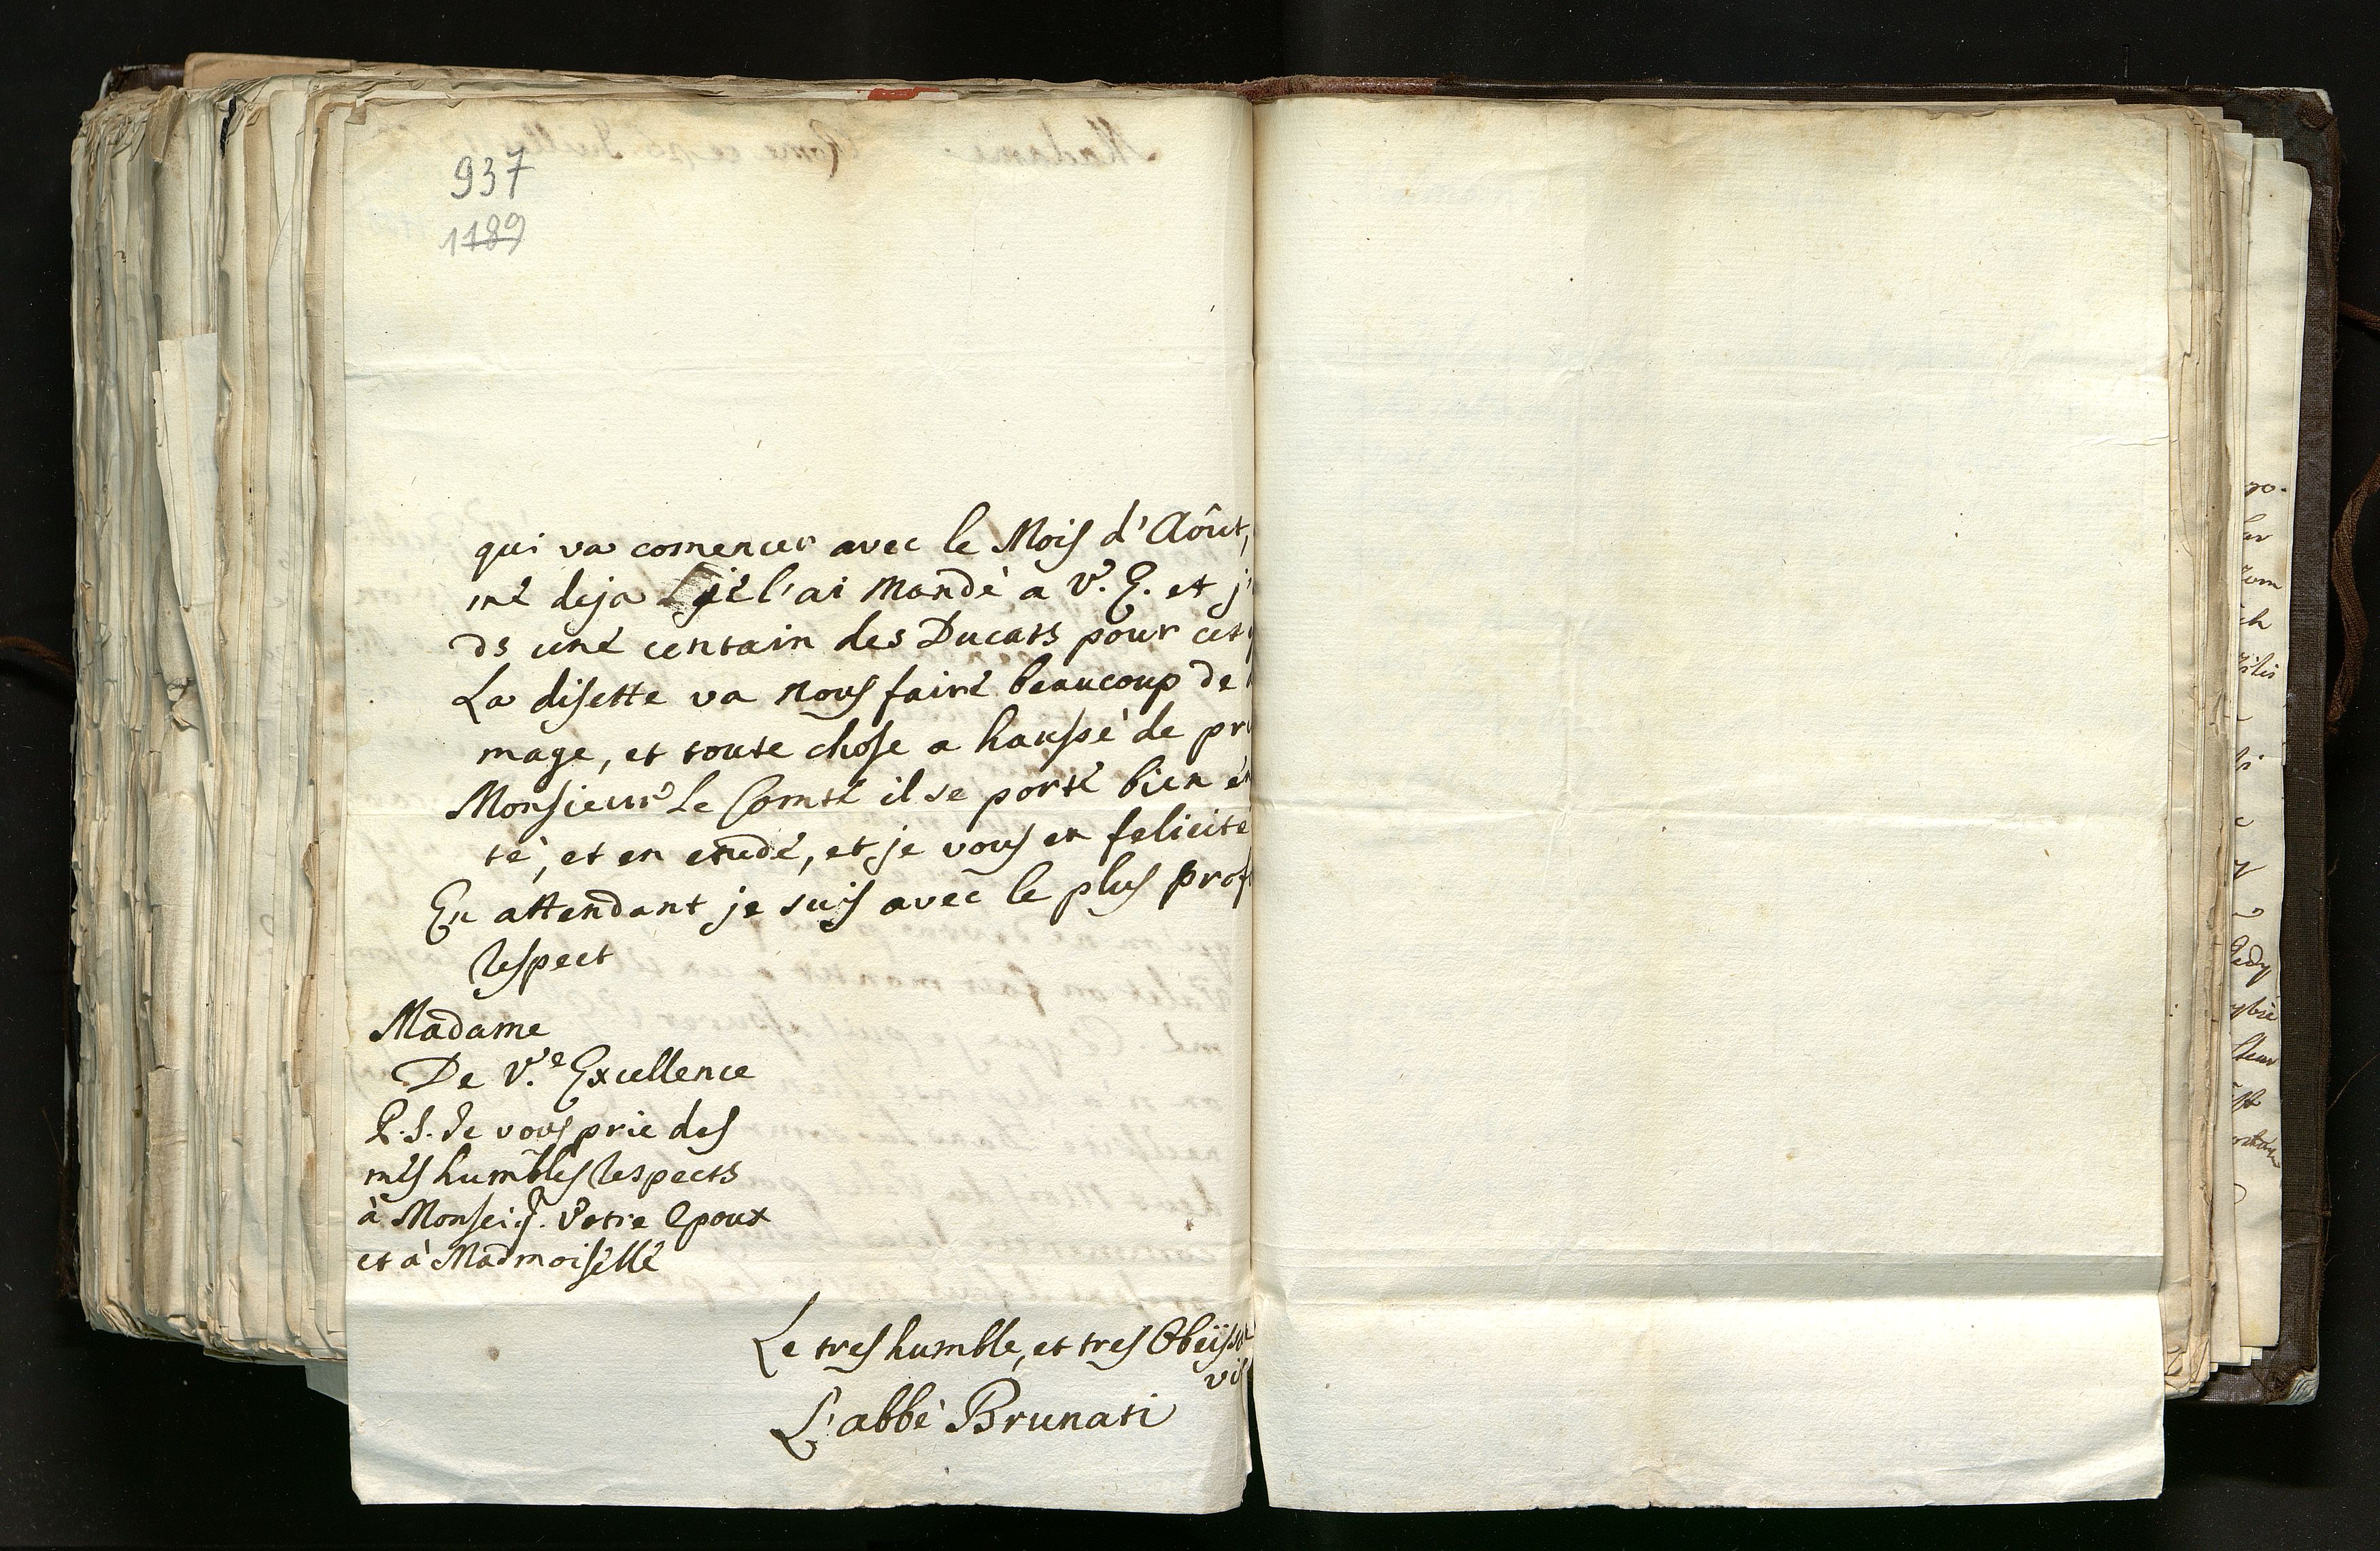 937
1189
qui va comencer avec le Mois d'Aôut,
me deja je l'ai Mandè a V. E. et j'
ds une centain des Ducats pour cet
La disette va nous faire beaucoup de
mage, et toute chose a haussè de pr
Monsieur Le Comte il se porte bien en
tè, et en etude, et je vous en felicite
En attendant je suis avec le plus prof
respect
Madame
De V.e Excellence
P.S. Je vous prie des
mes humbles respects
à Monseig.r Votre Epoux
et à Madmoiselle
Le tres humble, et tres Obeïss
L'abbè Brunati